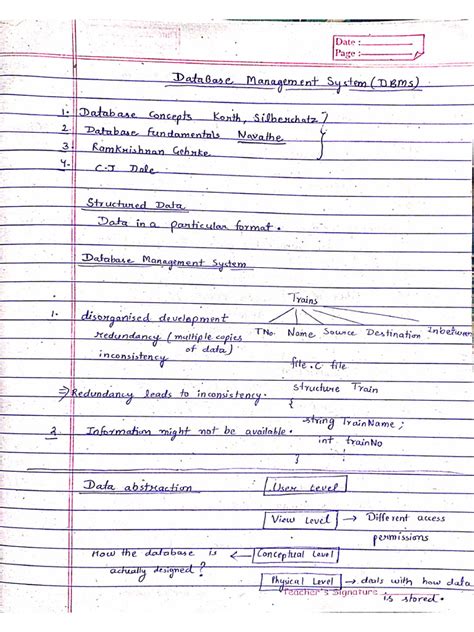 Date :
Page :
DataBase Management System (DBMS)
1. Database Concepts Korth, Silberchatz
2. Database Fundamentals Navathe
3. Ramkrishnan Gehrke
4. C.J Date
Structured Data
Data in a particular format.
Database Management System
Trains
1. disorganised development
TNo. Name Source Destination Inbetween
redundancy (multiple copies of data)
inconsistency
file.c file
structure Train
⇒ Redundancy leads to inconsistency.
{
string TrainName;
2. Information might not be available.
int trainNo
}
Data abstraction
User Level
View Level → Different access permissions
How the database is actually designed? ← Conceptual Level
Physical Level → deals with how data is stored.
Teacher's Signature